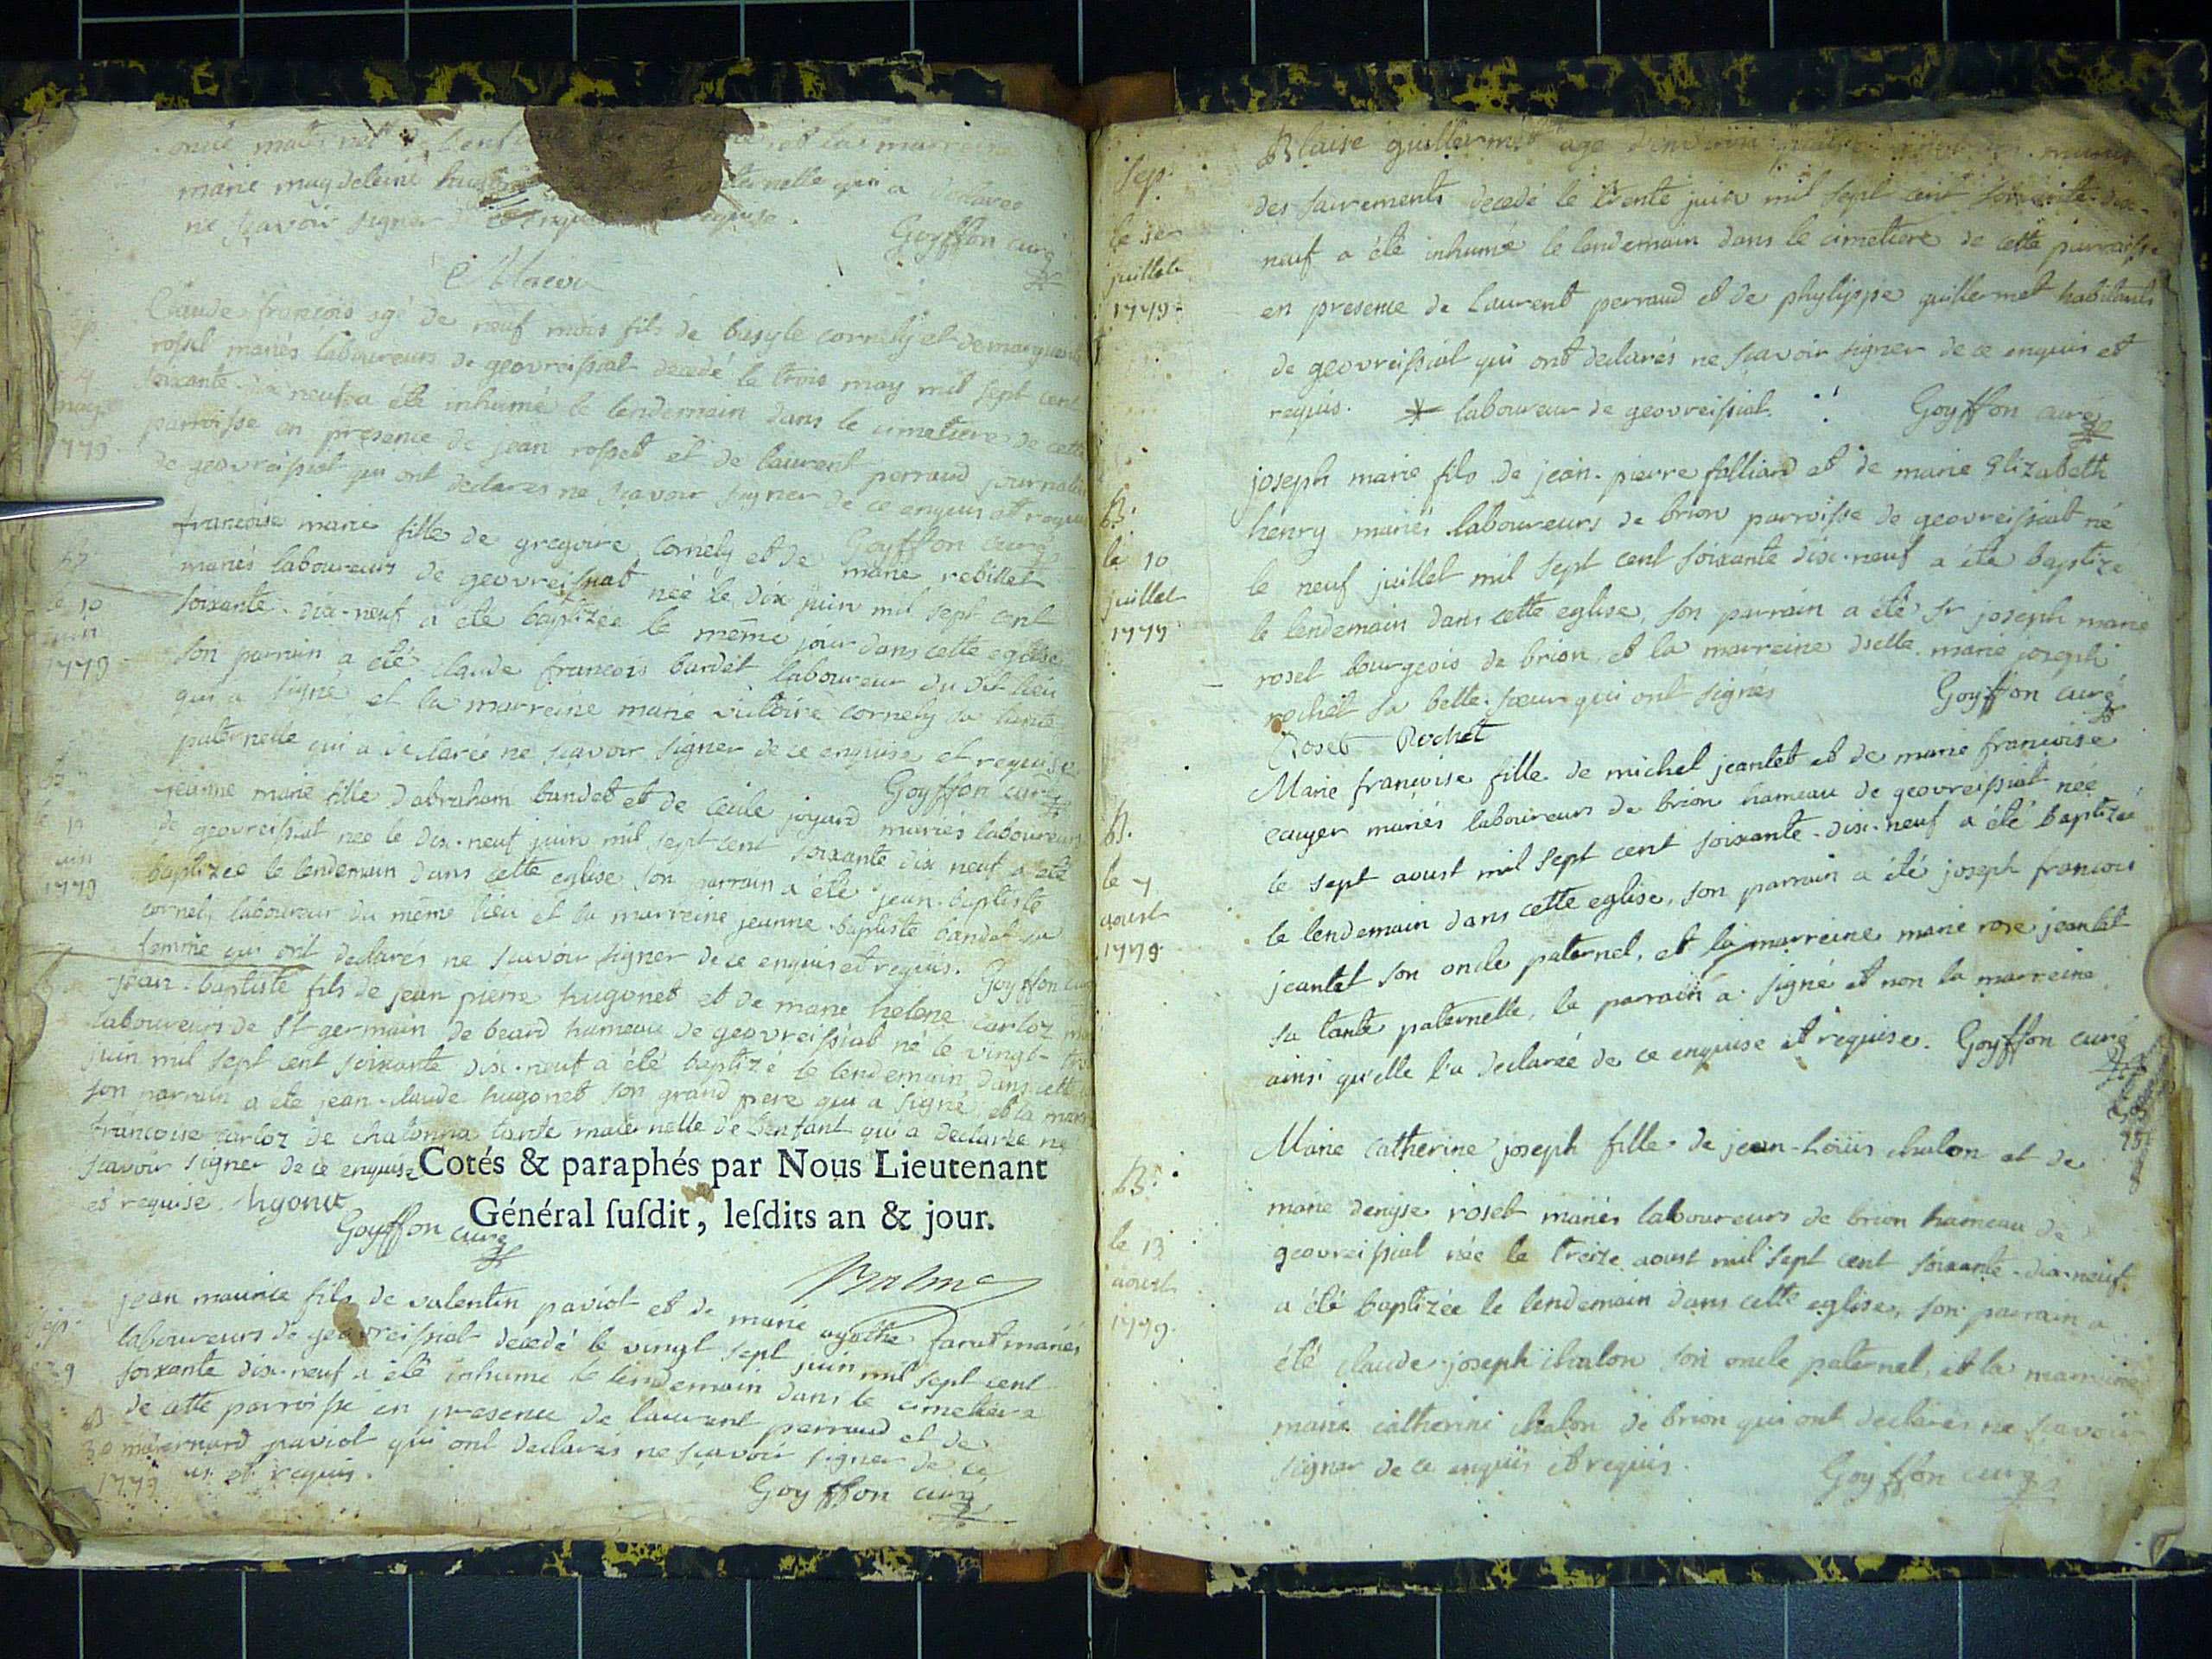 marie magdeleine
ne sçavoir signer
Goyffon curé
Claude françois agé de neuf mois fils de basyle cornely et de
rosset mariés laboureurs de geovreissiat decedé le trois may mil sept cent
soixante dix neuf a été inhumé le lendemain dans le cimetiere de cette
parroisse en presence de jean rosset et de laurent perraud
de geovreissiat qui ont declarés ne sçavoir signer de ce enquis et requis
may
1779
Goyffon curé
françoise marie fille de gregoire cornely et de marie rebillet
mariés laboureurs de geovreissiat née le dix juin mil sept cent
soixante-dix-neuf a été baptizée le même jour dans cette eglise
son parrain a été claude francois bandet laboureur du dit lieu
qui a signé et la marreine marie victoire cornely sa tante
paternelle qui a declarée ne sçavoir signer de ce enquise et requise
le 10
juin
1779
Goyffon curé
jeanne marie fille dabraham bandet et de cecile joyard mariés laboureurs
de geovreissiat née le dix-neuf juin mil sept cent soixante dix neuf a été
baptizée le lendemain dans cette eglise son parrain a été jean-baptiste
cornely laboureur du même lieu et la marreine jeanne baptiste bandet sa
femme qui ont declarés ne sçavoir signer de ce enquis et requis.
juin
1779
Goyffon
jean-baptiste fils de jean pierre hugonet et de marie helene carloz
laboureurs de St germain de beard hameau de geovreissiat né le vingt-
juin mil sept cent soixante dix-neuf a été baptizé le lendemain dans cette
son parrain a été jean-claude hugonet son grand pere qui a signé et la
francoise carloz de chatonna tante maternelle de Lenfant qui a declarée ne
scavoir signer de ce enquise
et requise. hugonet
Goyffon curé
Cotés & paraphés par Nous Lieutenant
Général susdit, lesdits an & jour.
jean maurice fils de valentin paviot et de marie agathe mariés
laboureurs de geovreissiat decedé le vingt sept juin mil sept cent
soixante dix-neuf a été inhumé le lendemain dans le cimetiere
de cette parroisse en presence de laurent perraud et de
paviot qui ont declarés ne sçavoir signer de ce
et requis.
1779
Goyffon curé
Sep.
le 1er
juillet
1779
Blaise guillermet agé
des sacrements decedé le trente juin mil sept cent soixante-dix-
neuf a été inhumé le lendemain dans le cimetiere de cette parroisse
en presence de Laurent perraud et de phylippe guillermet habitants
de geovreissiat qui ont declarés ne sçavoir signer de ce enquis et
requis. laboureur de geovreissiat. Goyffon curé
B.
le 10
juillet
1779
joseph marie fils de jean-pierre folliard et de marie Elizabeth
henry mariés laboureurs de brion parroisse de geovreissiat né
le neuf juillet mil sept cent soixante dix-neuf a été baptizé
le lendemain dans cette eglise, son parrain a été sr joseph marie
roset bourgeois de brion, et la marreine dselle marie joseph
rochet sa belle-sœur qui ont signés Goyffon curé
Roset Rochet
B.
le 7
aoust
1779
Marie françoise fille de michel jeantet et de marie francoise
cauyer mariés laboureurs de brion hameau de geovreissiat née
le sept aoust mil sept cent soixante-dix-neuf a été baptizée
le lendemain dans cette eglise, son parrain a été joseph francois
jeantet son oncle paternel, et la marreine marie rose jeantet
sa tante paternelle, le parrain a signé et non la marreine
ainsi qu'elle l'a declarée de ce enquise et requise. Goyffon curé
B.
le 13
aoust
1779.
Marie Catherine joseph fille de jean-Loüis chalon et de
marie denyse roset mariés laboureurs de brion hameau de
geovreissiat née le treize aoust mil sept cent soixante-dix-neuf
a été baptizée le lendemain dans cette eglise, son parrain a
été claude-joseph chalon son oncle paternel, et la marreine
marie catherine chalon de brion qui ont declarés ne sçavoir
signer de ce enquis et requis. Goyffon curé